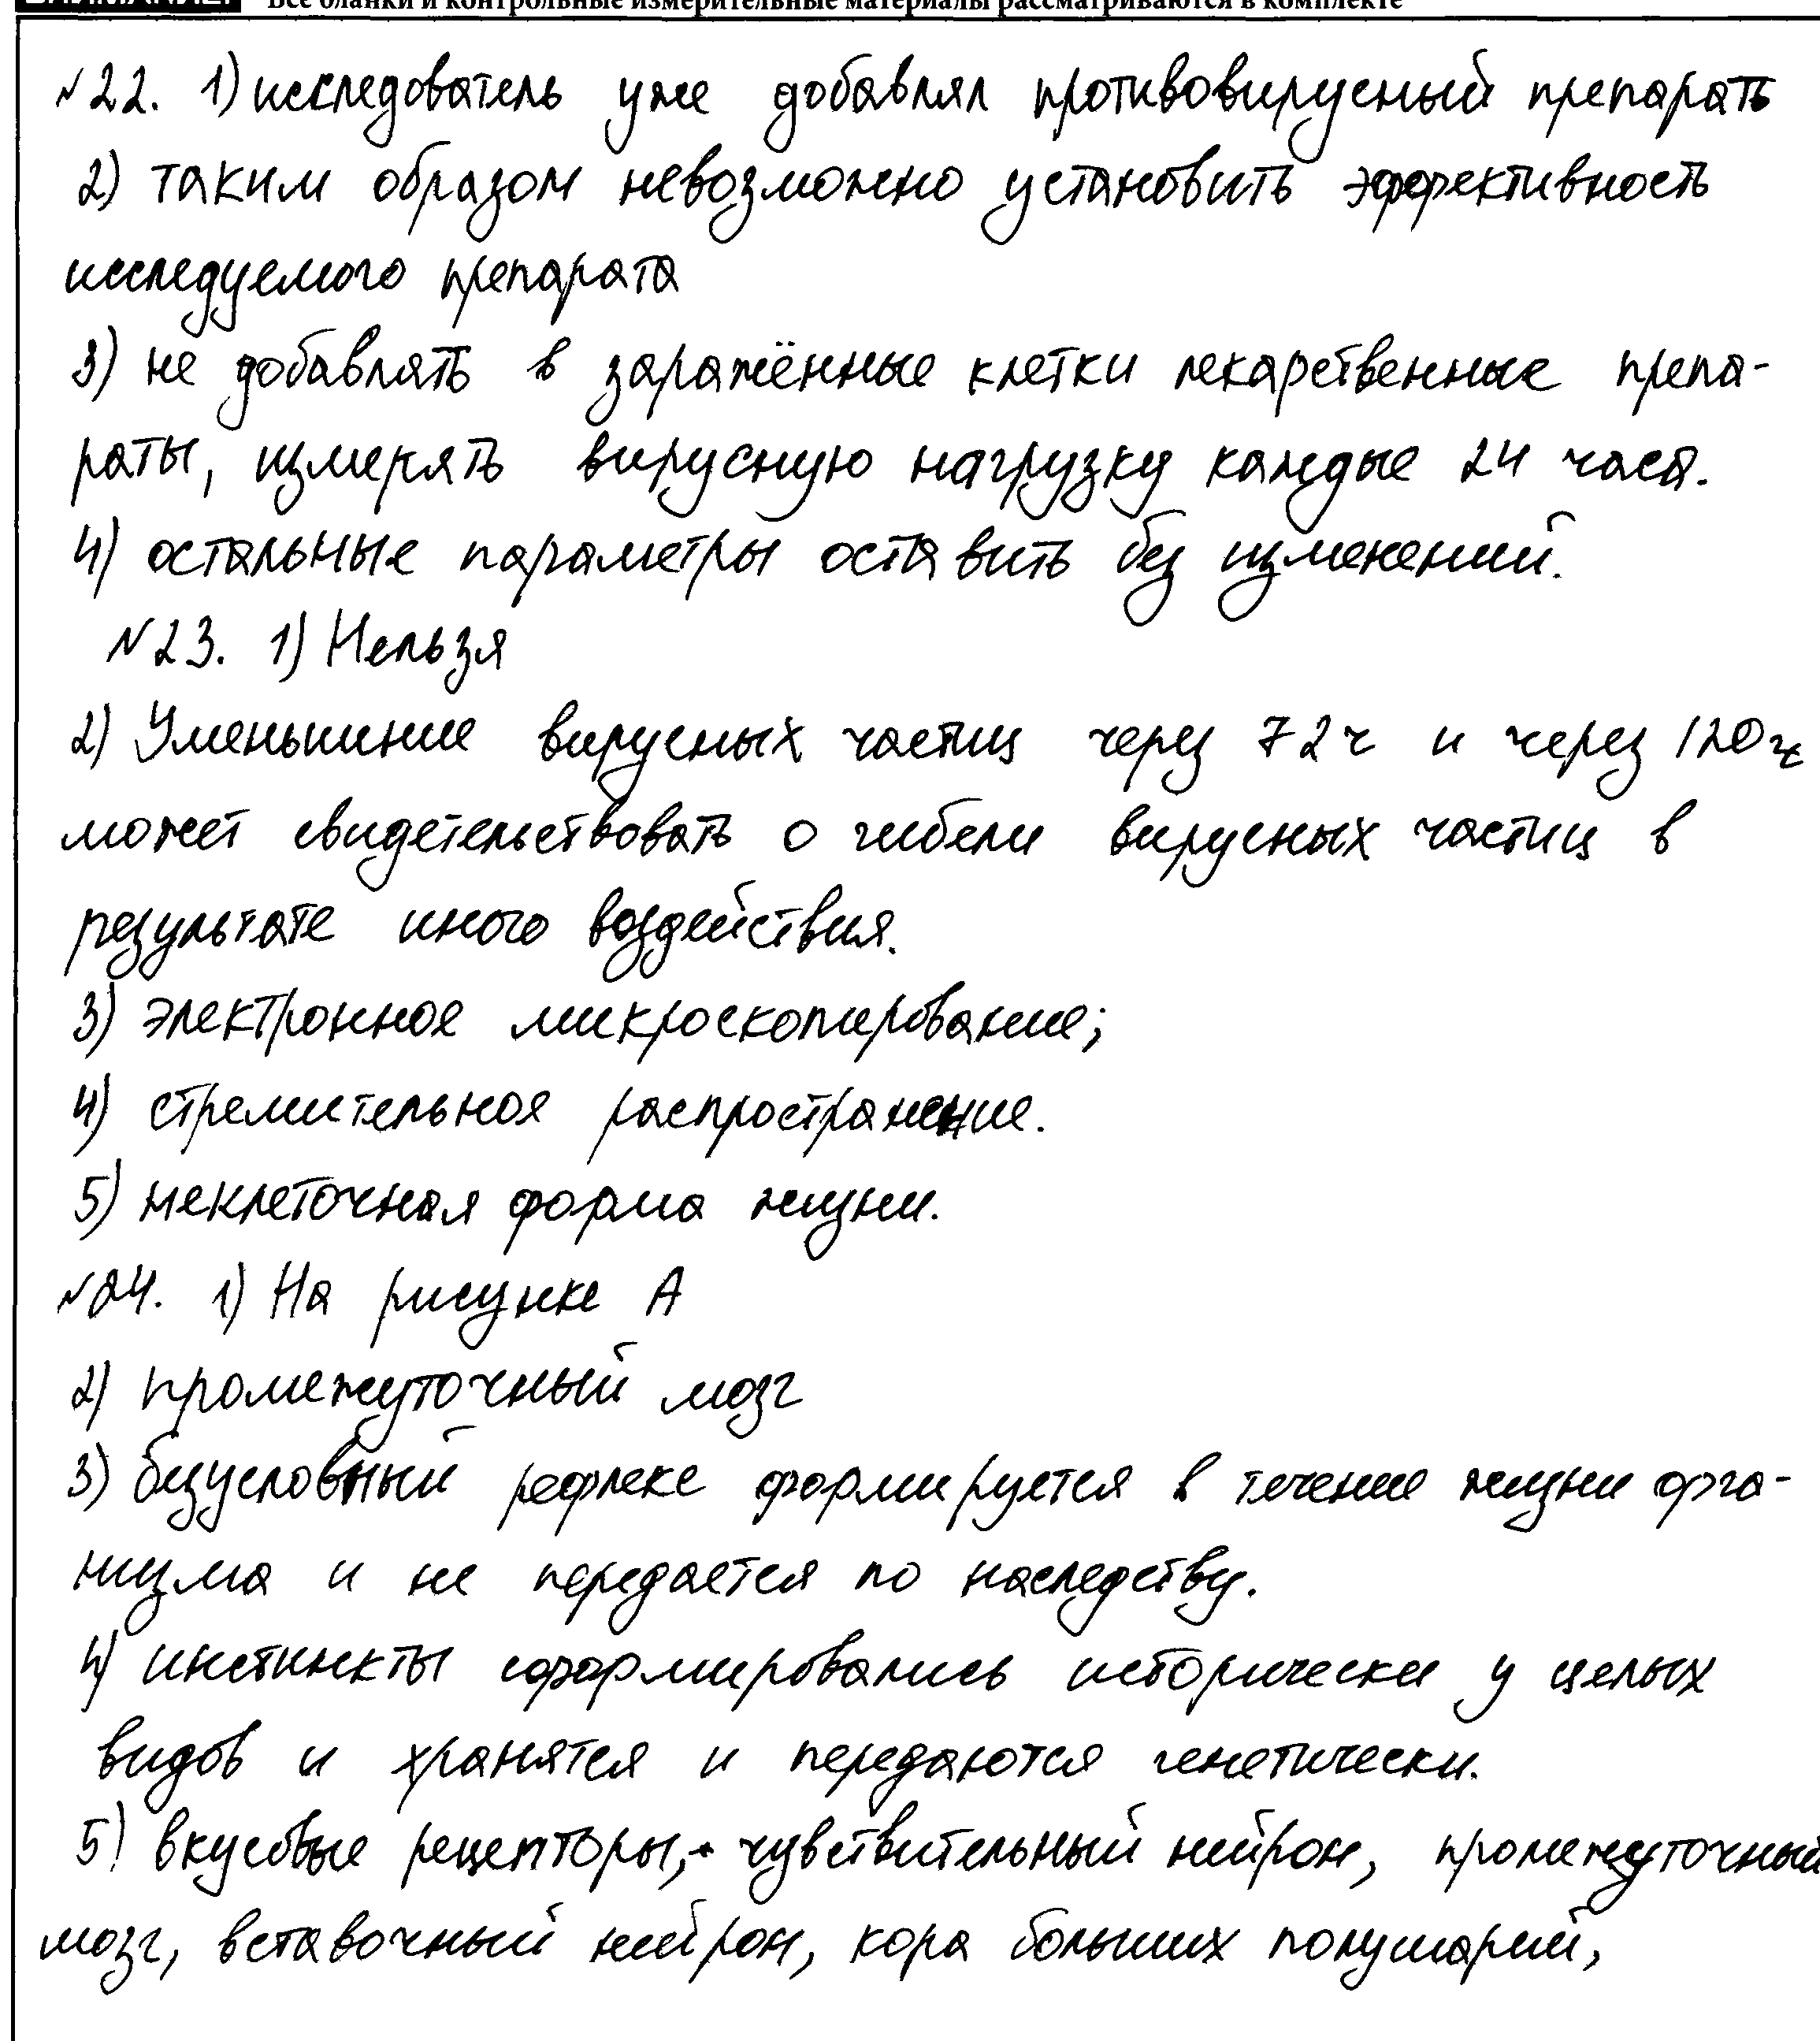 Все бланки и контрольные измерительные материалы рассматриваются в комплекте
№22. 1) исследователь уже добавлял противовирусный препарать
2) таким образом невозможно установить эффективность
исследуемого препарата
3) не добавлять в заражённые клетки лекарственные препа-
раты, измерять вирусную нагрузку каждые 24 часа.
4) остальные параметры оставить без изменений.
№23. 1) Нельзя
2) Уменьшиние вирусных частиц через 72ч и через 120ч
может свидетельствовать о гибели вирусных частиц в
результате иного воздействия.
3) электронное микроскопирование;
4) стремительное распространение.
5) неклеточная форма жизни.
№24. 1) На рисунке А
2) промежуточный мозг
3) безусловный рефлекс формируется в течение жизни орга-
низма и не передается по наследству.
4) инстинкты сформировались исторически у целых
видов и хранятся и передаются генетически.
5) вкусовые рецепторы, чувствительный нейрон, промежуточный
мозг, вставочный нейрон, кора больших полушарий,